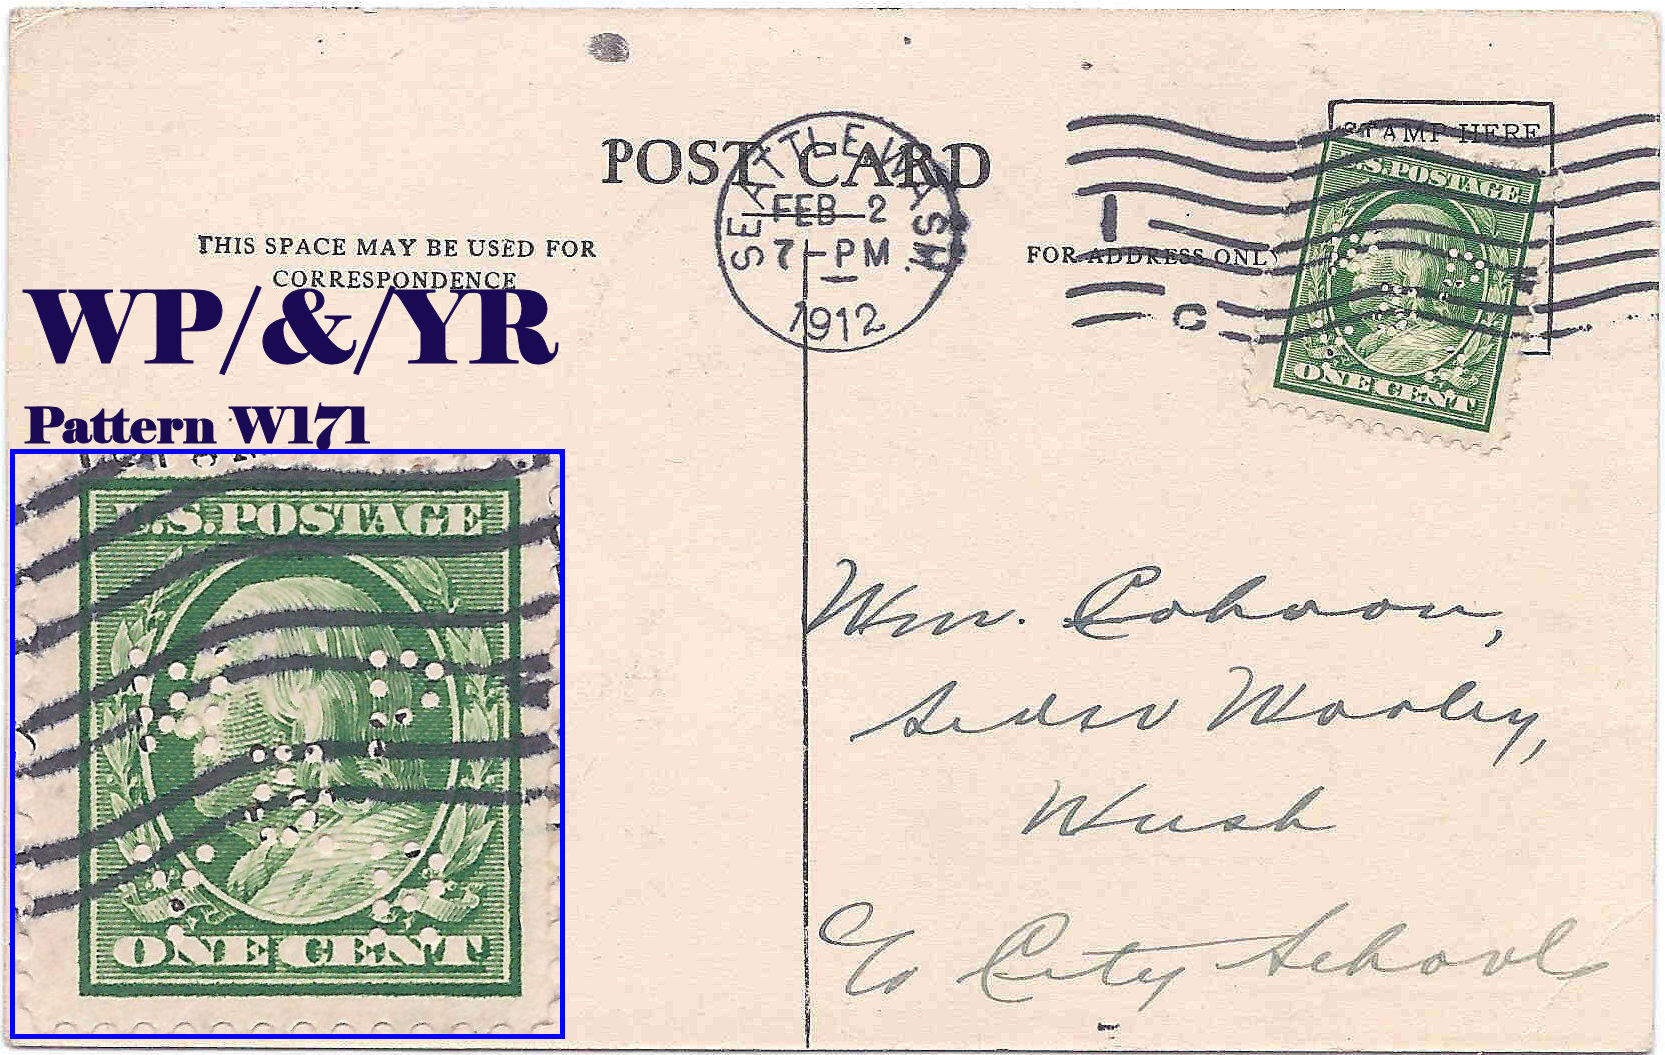 POST CARD
THIS SPACE MAY BE USED FOR
CORRESPONDENCE
WP/&/YR
Pattern W171
U.S. POSTAGE
ONE CENT
SEATTLE, WASH.
FEB 2
7-PM
1912
1
C
STAMP HERE
FOR ADDRESS ONLY
U.S. POSTAGE
ONE CENT
Wm. Cohoon,
Sedro Wooley,
Wash
c/o City Schools